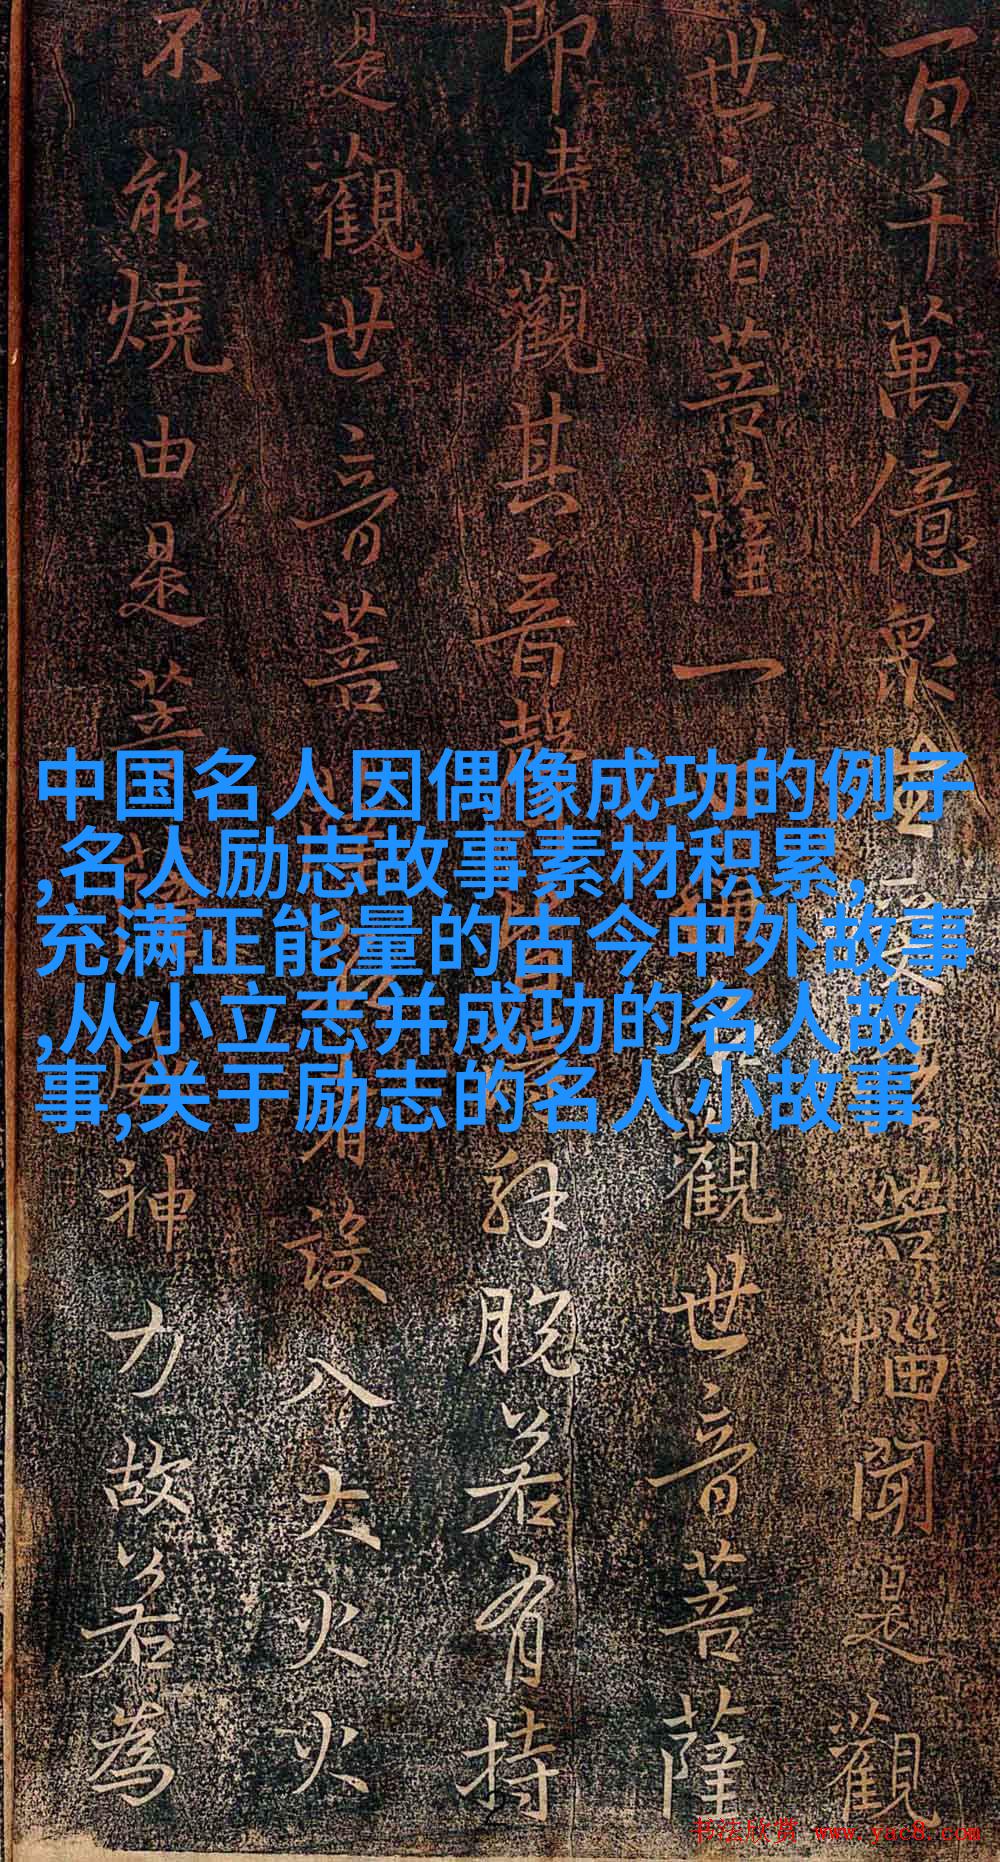 百千萬億眾生受苦惱聞是觀
世音菩薩一稱名觀世音菩薩
即時觀其音聲皆解脫若有持
是觀世音菩者設入大火火
不能燒由是菩威神力故若為
中国名人因偶像成功的例子
,名人励志故事素材积累,
充满正能量的古今中外故事
,从小立志并成功的名人故
事,关于励志的名人小故事
书法欣赏 www.yac8.com